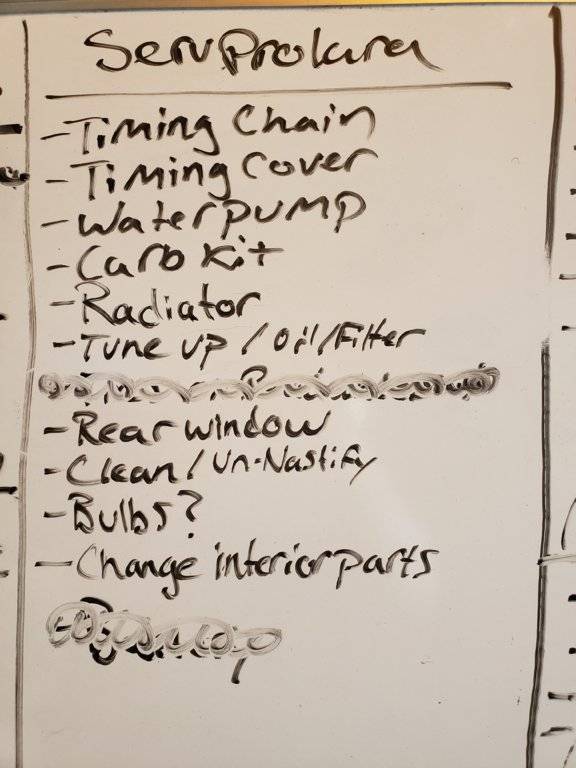 ServProlura
- Timing Chain
- Timing Cover
- Waterpump
- Carb Kit
- Radiator
- Tune up / Oil / Filter
- Rear window
- Clean / Un-Nastify
- Bulbs?
- Change interior parts